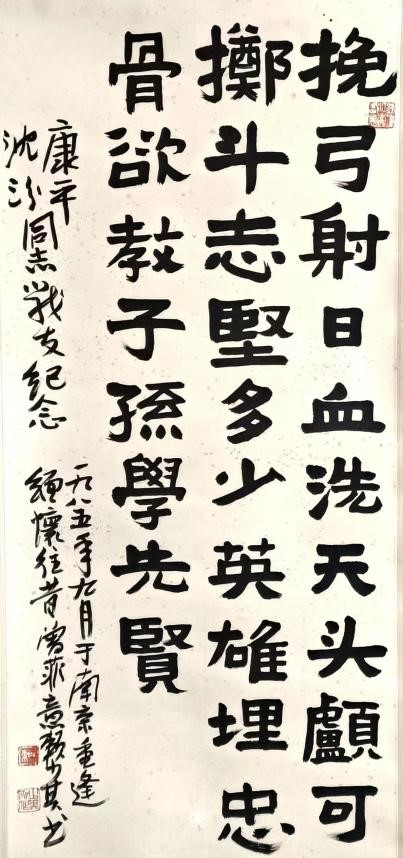 挽弓射日血洗天头顱可
擲斗志堅多少英雄埋忠
骨欲教子孫學先賢
康平
沈汾同志战友紀念
一九八五年九月于南京重逢
緬懷往昔曾非意賴少其书